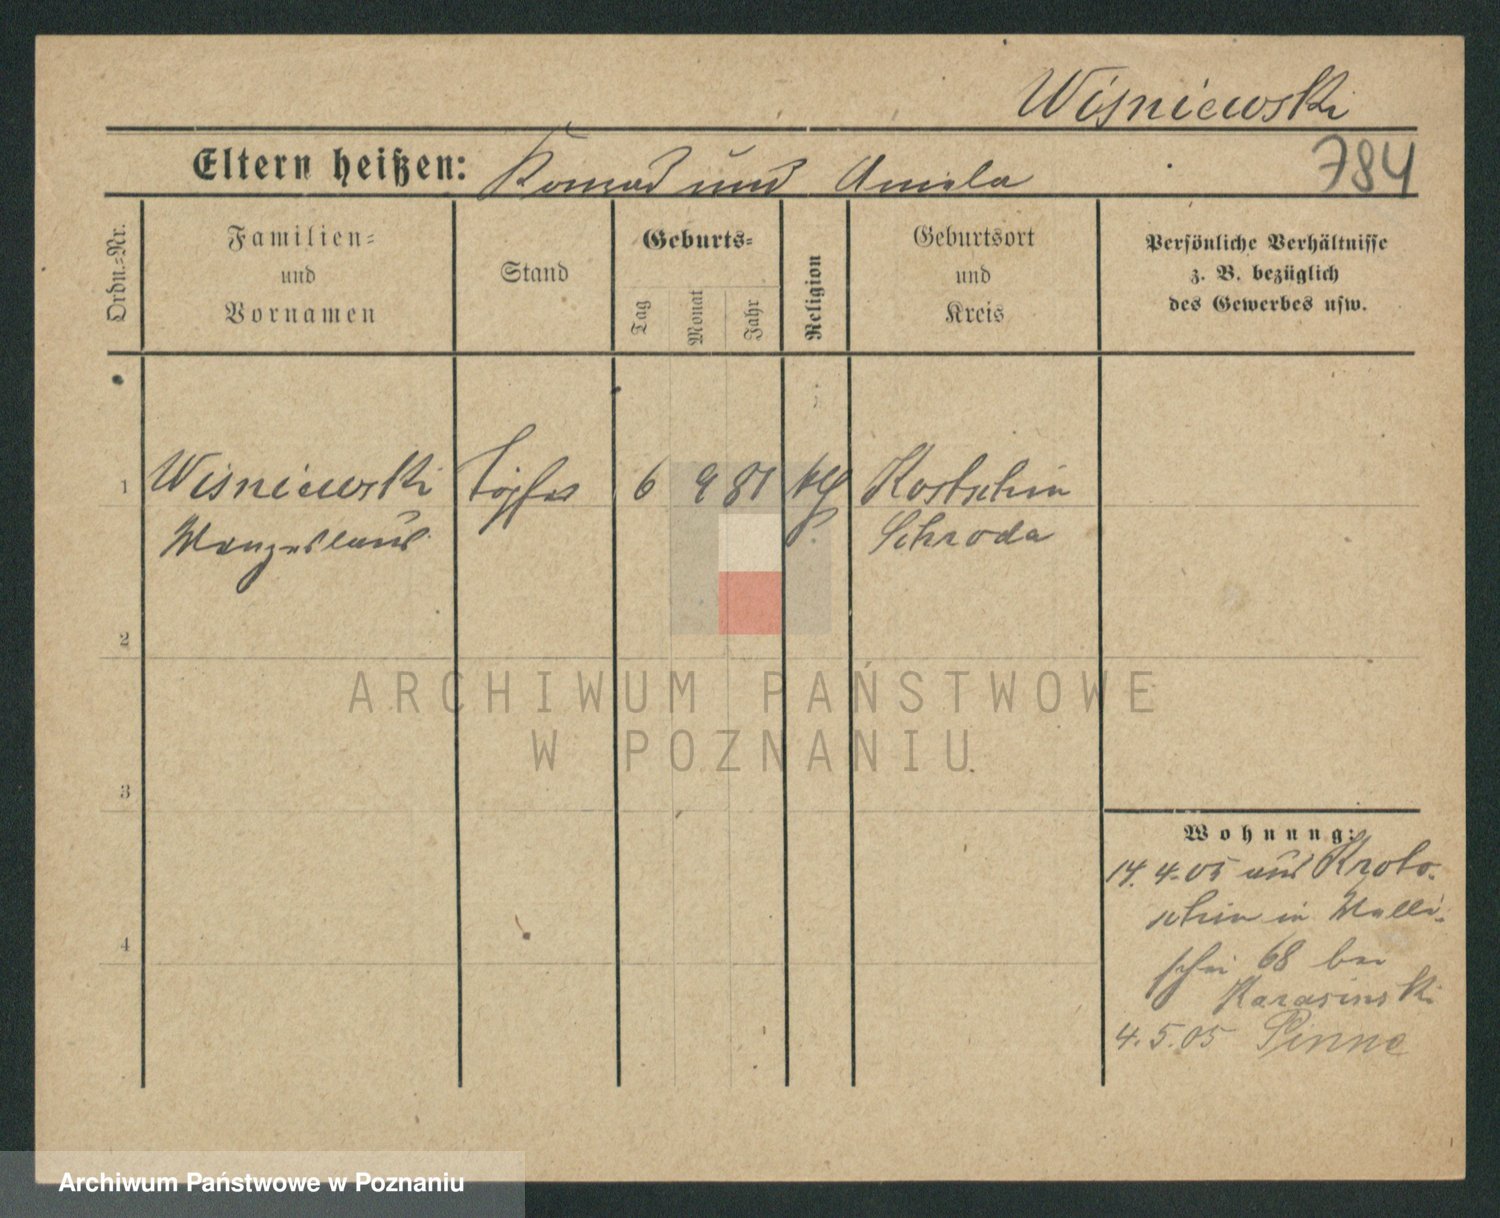 Wisniewski
784
Eltern heißen: Konrad und Aniela
Ordn.-Nr.
Familien-
und
Vornamen
Stand
Geburts-
Tag
Monat
Jahr
Religion
Geburtsort
und
Kreis
Persönliche Verhältnisse
z. B. bezüglich
des Gewerbes usw.
1 Wisniewski Töpfer 6 9 81 Kostschin
Wenzeslaus Schroda
2
ARCHIWUM PAŃSTWOWE
W POZNANIU
3
Wohnung:
14. 4. 05 aus Kroto-
schin in Walli-
schei 68 bei
Karasinski
4
4. 5. 05 Pinne
Archiwum Państwowe w Poznaniu